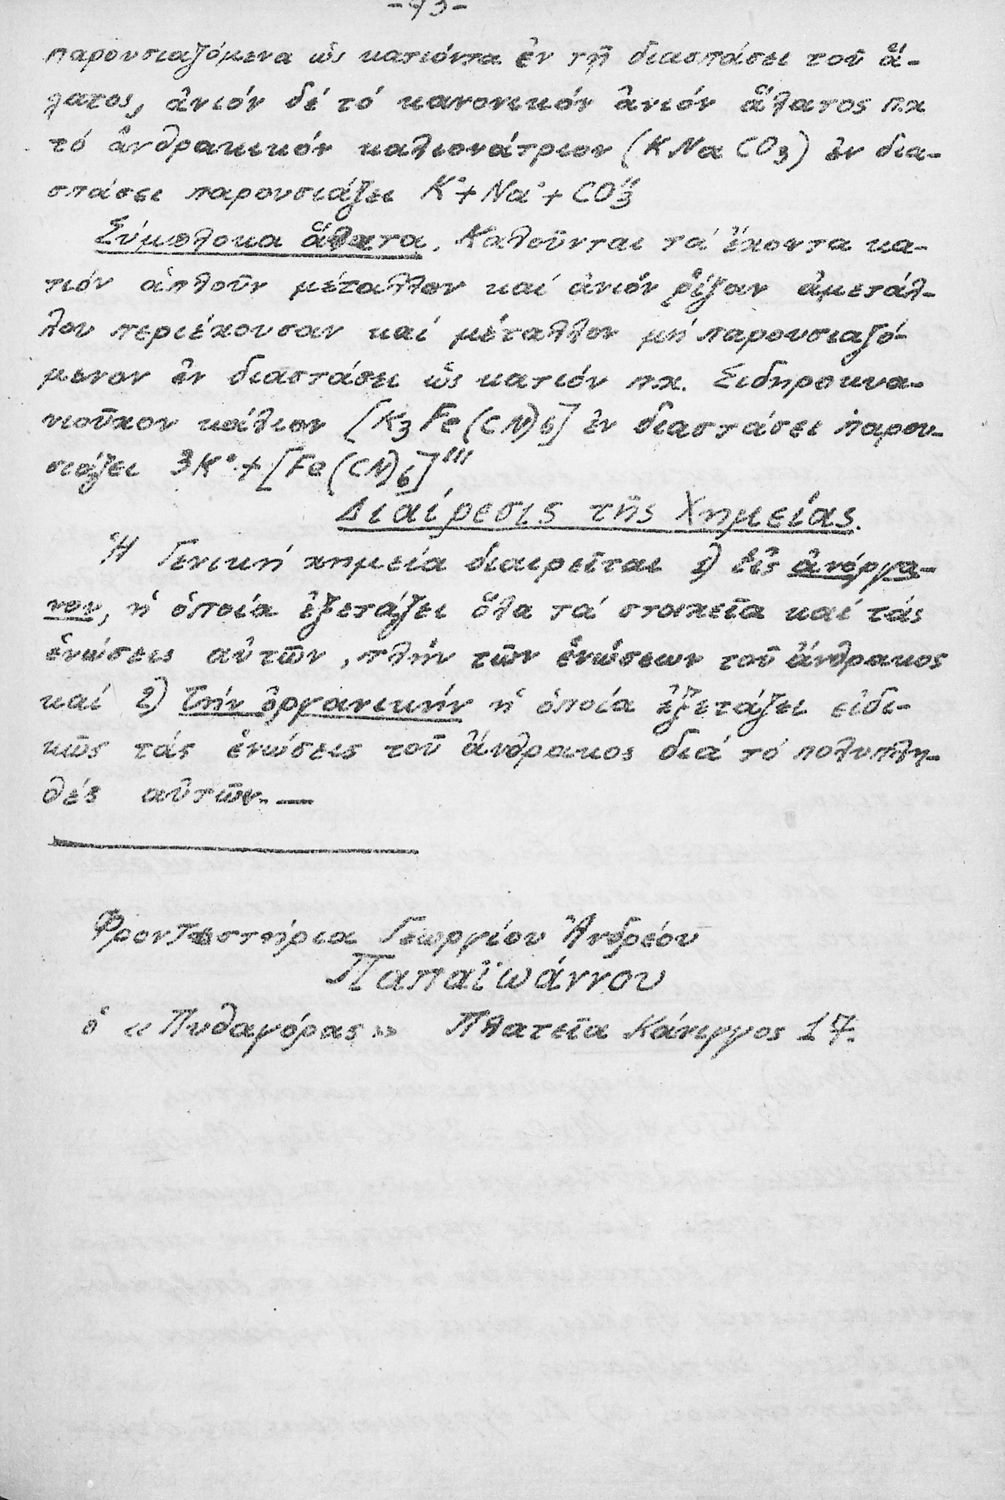 -73-
παρουσιαζόμενα ὡς κατιόντα ἐν τῇ διασπάσει τοῦ ἅ-
λατος, ἀνιόν δέ τό κανονικόν ἀνιόν ἅλατος π.χ
τό ἀνθρακικόν καλιονάτριον (KNaCO3) ἐν δια-
σπάσει παρουσιάζει K°+Na°+CO3"
Σύμπλοκα ἅλατα. Καλοῦνται τά ἔχοντα κα-
τιόν ἁπλοῦν μέταλλον καί ἀνιόν ῥίζαν ἀμετάλ-
λου περιέχουσαν καί μέταλλον μή παρουσιαζό-
μενον ἐν διασπάσει ὡς κατιόν π.χ. Σιδηροκυα-
νιοῦχον κάλιον [K3Fe(CN)6] ἐν διασπάσει παρου-
σιάζει 3K°+[Fe(CN)6]'''
Διαίρεσις τῆς Χημείας.
Ἡ Γενική χημεία διαιρεῖται 1) Εἰς ἀνόργα-
νον, ἡ ὁποία ἐξετάζει ὅλα τά στοιχεῖα καί τάς
ἑνώσεις αὐτῶν, πλήν τῶν ἑνώσεων τοῦ ἄνθρακος
καί 2) Τήν ὀργανικήν ἡ ὁποία ἐξετάζει εἰδι-
κῶς τάς ἑνώσεις τοῦ ἄνθρακος διά τό πολυπλη-
θές αὐτῶν.—
Φροντιστήρια Γεωργίου Ἀνδρέου
Παπαϊωάννου
ὁ «Πυθαγόρας» Πλατεῖα Κάνιγγος 17.